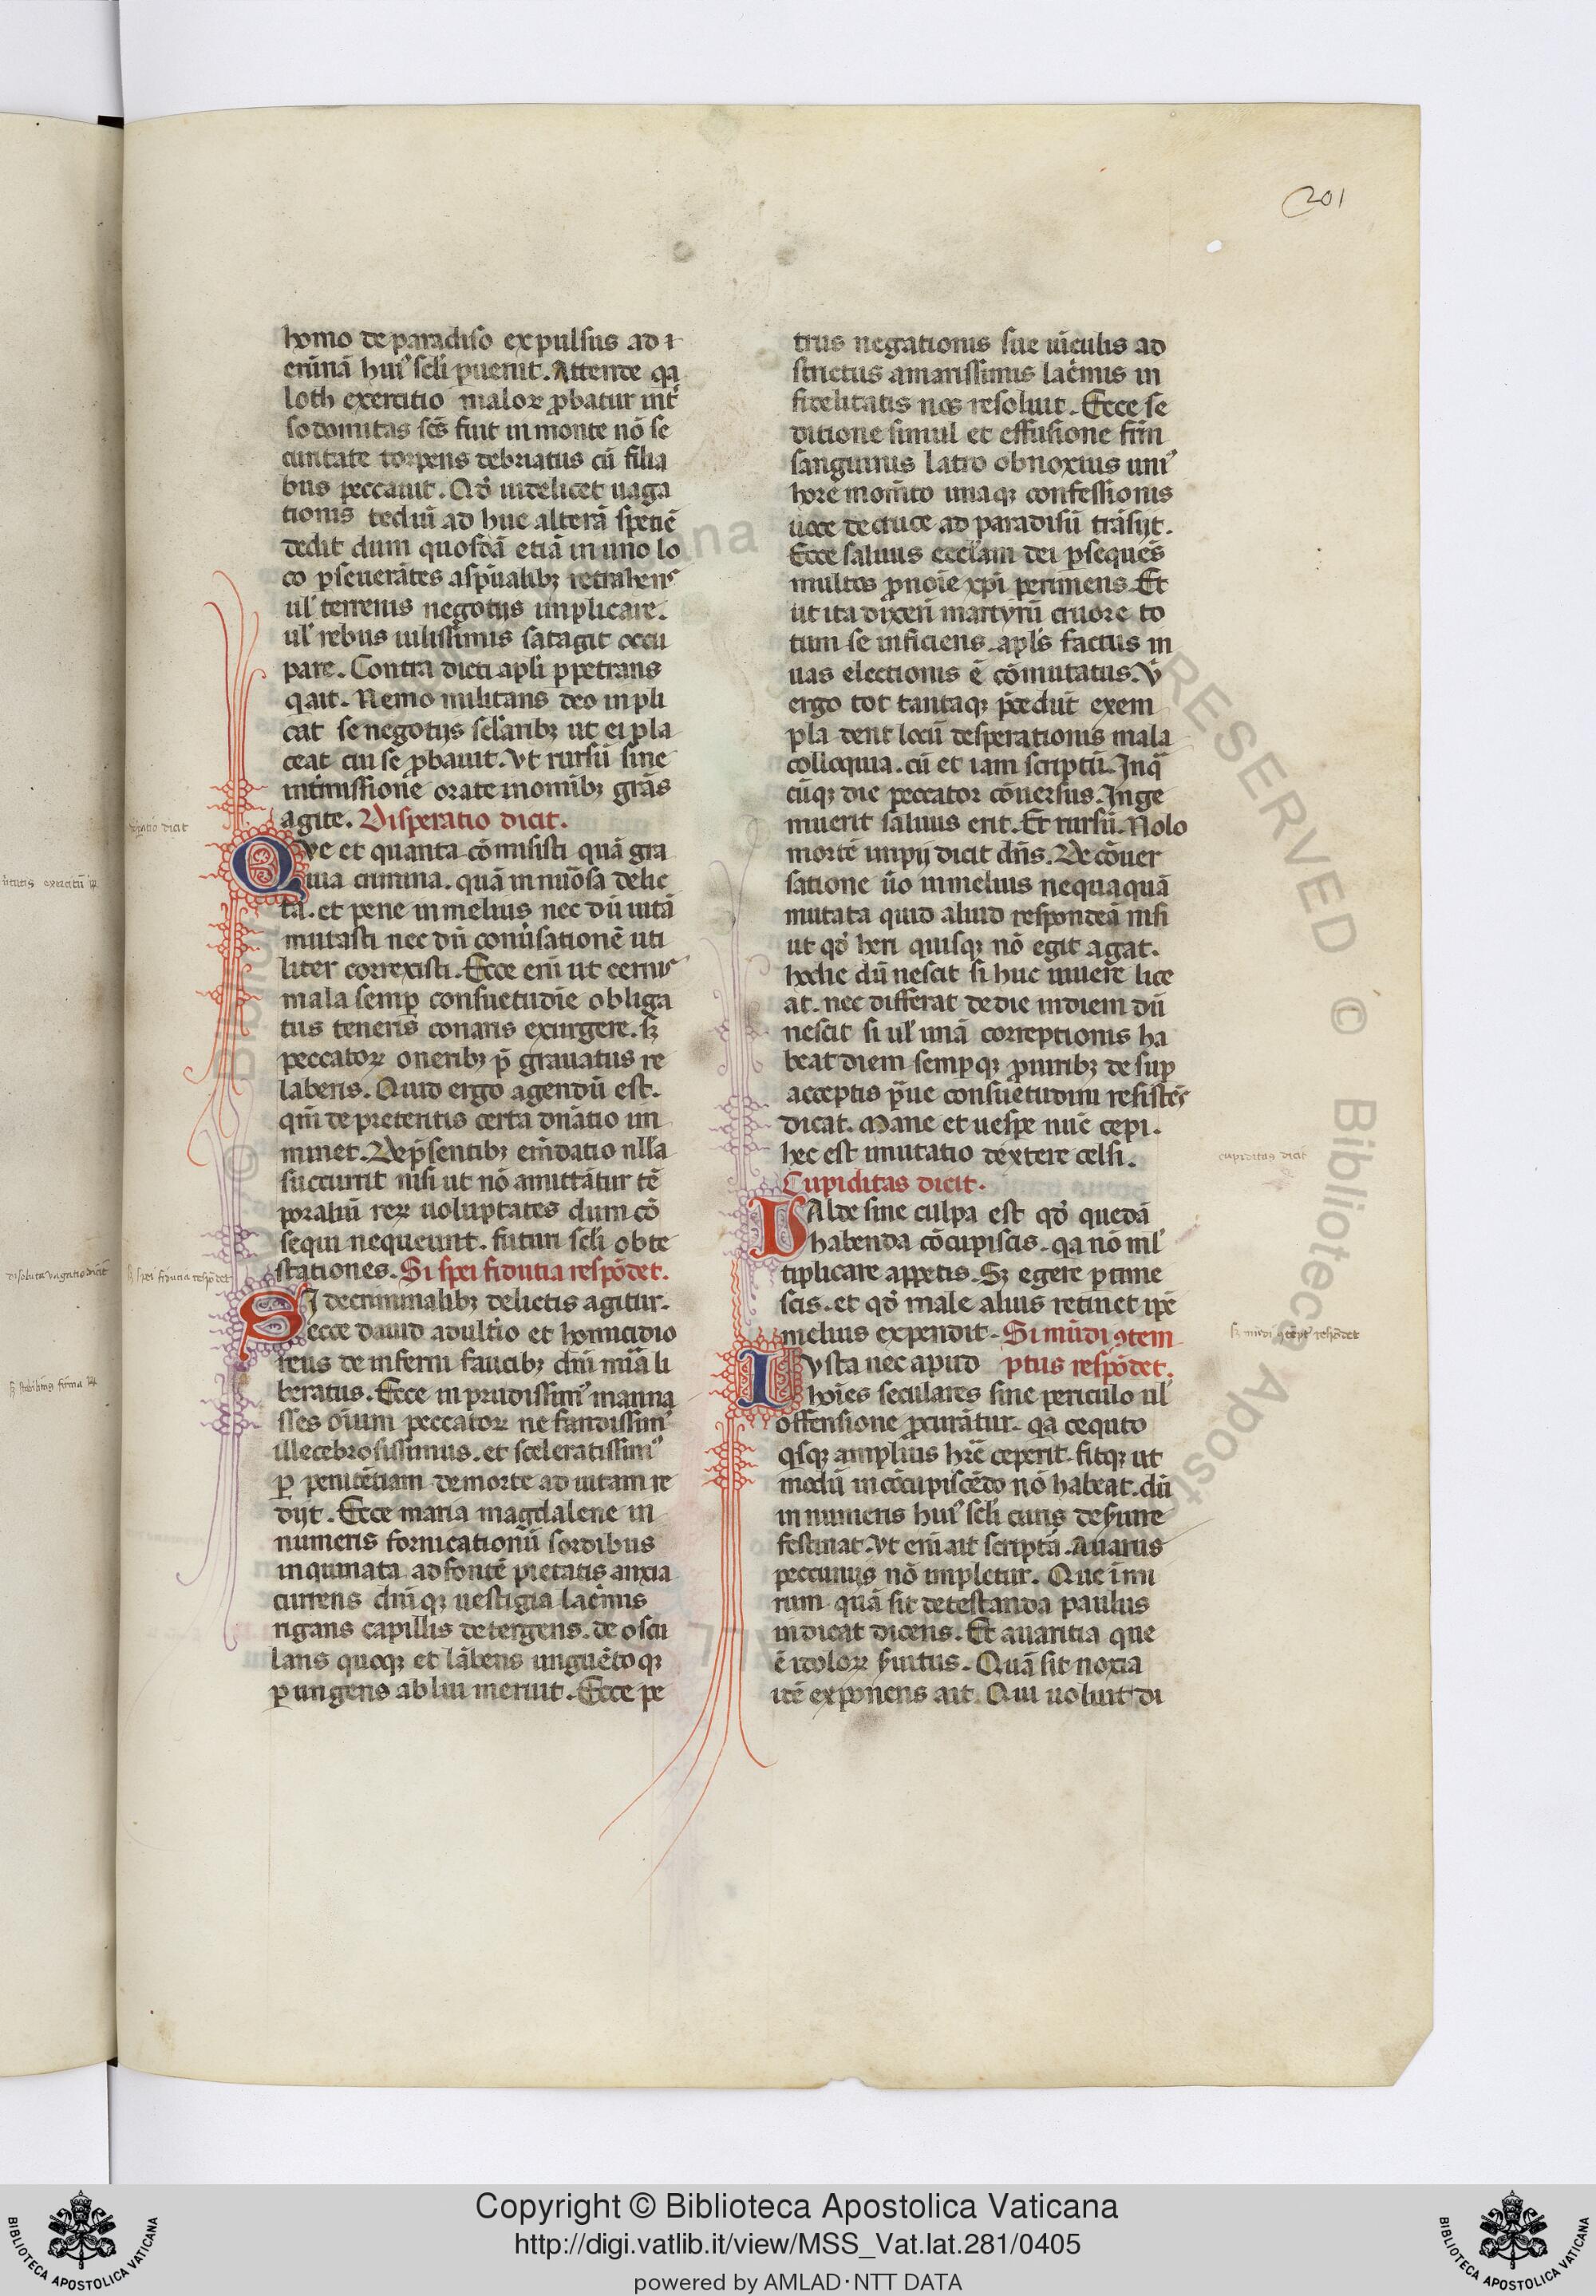 201
homo de paradiso expulsus ad i
eriinā hui᷒ sc̄li puenit. Attende qa
loth exercitio malorꝝ ꝓbatur int̄
sodomitas sc̄s fuit in monte nō se
curitate torpens debriatus cū filia
bus peccauit. Qd̄ uidelicet uaga
tionis tediū ad huc alterā speciē
dedit dum quosdā etiā in uno lo
co ꝑseuerātes a sp̄ualibꝫ retrahens
ul̓ terrenis negotijs implicare.
ul̓ rebus uilissimis satagit occu
pare. Contra dicti apl̄i ꝑpetrans
q̇ ait. Nemo militans deo inpli
cat se negotijs sc̄laribꝫ ut ei pla
ceat cui se ꝓbauit. Vt rursū sine
int̄missione orate in om̄ibꝫ grās
agite. Disperatio dicit.
Que et quanta cōmisisti quā gra
uia crimina. quā innūosa delic
ta. et pene in melius nec dū uitā
mutasti nec dū conūsationē uti
liter correxisti. Ecce eni ut cernis
mala semꝑ consuetudīe obliga
tus teneris conaris exurgere. sꝫ
peccatorꝝ oneribꝫ p̄ grauatus re
laberis. Quid ergo agendū est.
qm̄ de preteritis certa dn̄atio im
minet. De p̄sentibꝫ em̄datio nlla
succurrit nisi ut nō amittātur tē
poraliū rerꝝ uoluptates dum cō
sequi nequeunt. futuri sc̄li obte
stationes. Si spei fidutia respōdet.
SI de criminalibꝫ delictis agitur.
ecce dauid adult̓io et homicidio
reus de inferni faucibꝫ dn̄i mīa li
beratus. Ecce inprudissim᷒ manna
sses oīum peccatorꝝ nefandissim᷒
illecebrosissimus. et sceleratissim᷒
ꝑ penitētiam de morte ad uitam re
dijt. Ecce maria magdalene in
numeris fornicationū sordibus
inquinata ad fontē pietatis anxia
currens dn̄iqꝫ uestigia lacrimis
rigans capillis detergens. de oscu
lans quoqꝫ et lābens unguētoqꝫ
ꝑungens ablui meruit. Ecce pe
trus negationis sue uīculis ad
strictus amarissimis lacrimis in
fidelitatis nos resoluit. Ecce se
ditione simul et effusione frīn
sanguinis latro obnoxius uni᷒
hore mom̄to unaqꝫ confessionis
uoce de cruce ad paradisū trāsijt.
Ecce saluus eccl̄am dei ꝑsequēs
multos ꝓ noīe xp̄i perimens. Et
ut ita dixeri martyrū cruore to
tum se inficiens apl̄s factus in
uas electionis ē cōmutatus. Vͥ
ergo tot tantaqꝫ p̄cedūt exem
pla dent locū desperationis mala
colloquia. cū et iam scriptū. In q̄
cūqꝫ die peccator cōuersus. Inge
muerit saluus erit. Et rursū. Nolo
mortē impij dicit dn̄s. De cōuer
satione ūo in melius nequaquā
mutata quid aliud respondeā nisi
ut qd̄ heri quisqꝫ nō egit agat.
hodie dū nescit si huc uiuere lice
at. nec differat de die in diem dū
nescit si ul̓ unā correptionis ha
beat diem sempqꝫ ꝓ uiribꝫ desup
acceptis praue consuetudini resistēs
dicat. Mane et uespe nūc cepi.
hec est imutatio dextere celsi.
Cupiditas dicit.
VAlde sine culpa est qd̄ quedā
habenda cōcupiscis. qa nō ml̓
tiplicare appetis. Sꝫ egere ꝑtime
scis. et qd̄ male alius retinet ip̄e
melius expendit. Si mūdi ꝯtem
Iusta nec apud ptus respōdet.
hoīes seculares sine periculo ul̓
offensione ꝓcurātur. qa ceꝗto
qͥsqꝫ amplius hr̄e ceperit. fitqꝫ ut
modū in cōcupiscēdo nō habeat. dū
innumeris hui᷒ sc̄li curis deseruire
festinat. Vt eni ait scriptā. Auarus
peccunijs nō impletur. Que īmi
rum quā sit detestanda paulus
indicat dicens. Et auaritia que
ē idolorꝝ s̄uitus. Quā sit noxia
itē exponens ait. Qui uoluit di
cupiditas dicit
Copyright © Biblioteca Apostolica Vaticana
http://digi.vatlib.it/view/MSS_Vat.lat.281/0405
powered by AMLAD·NTT DATA
BIBLIOTECA APOSTOLICA VATICANA
BIBLIOTECA APOSTOLICA VATICANA